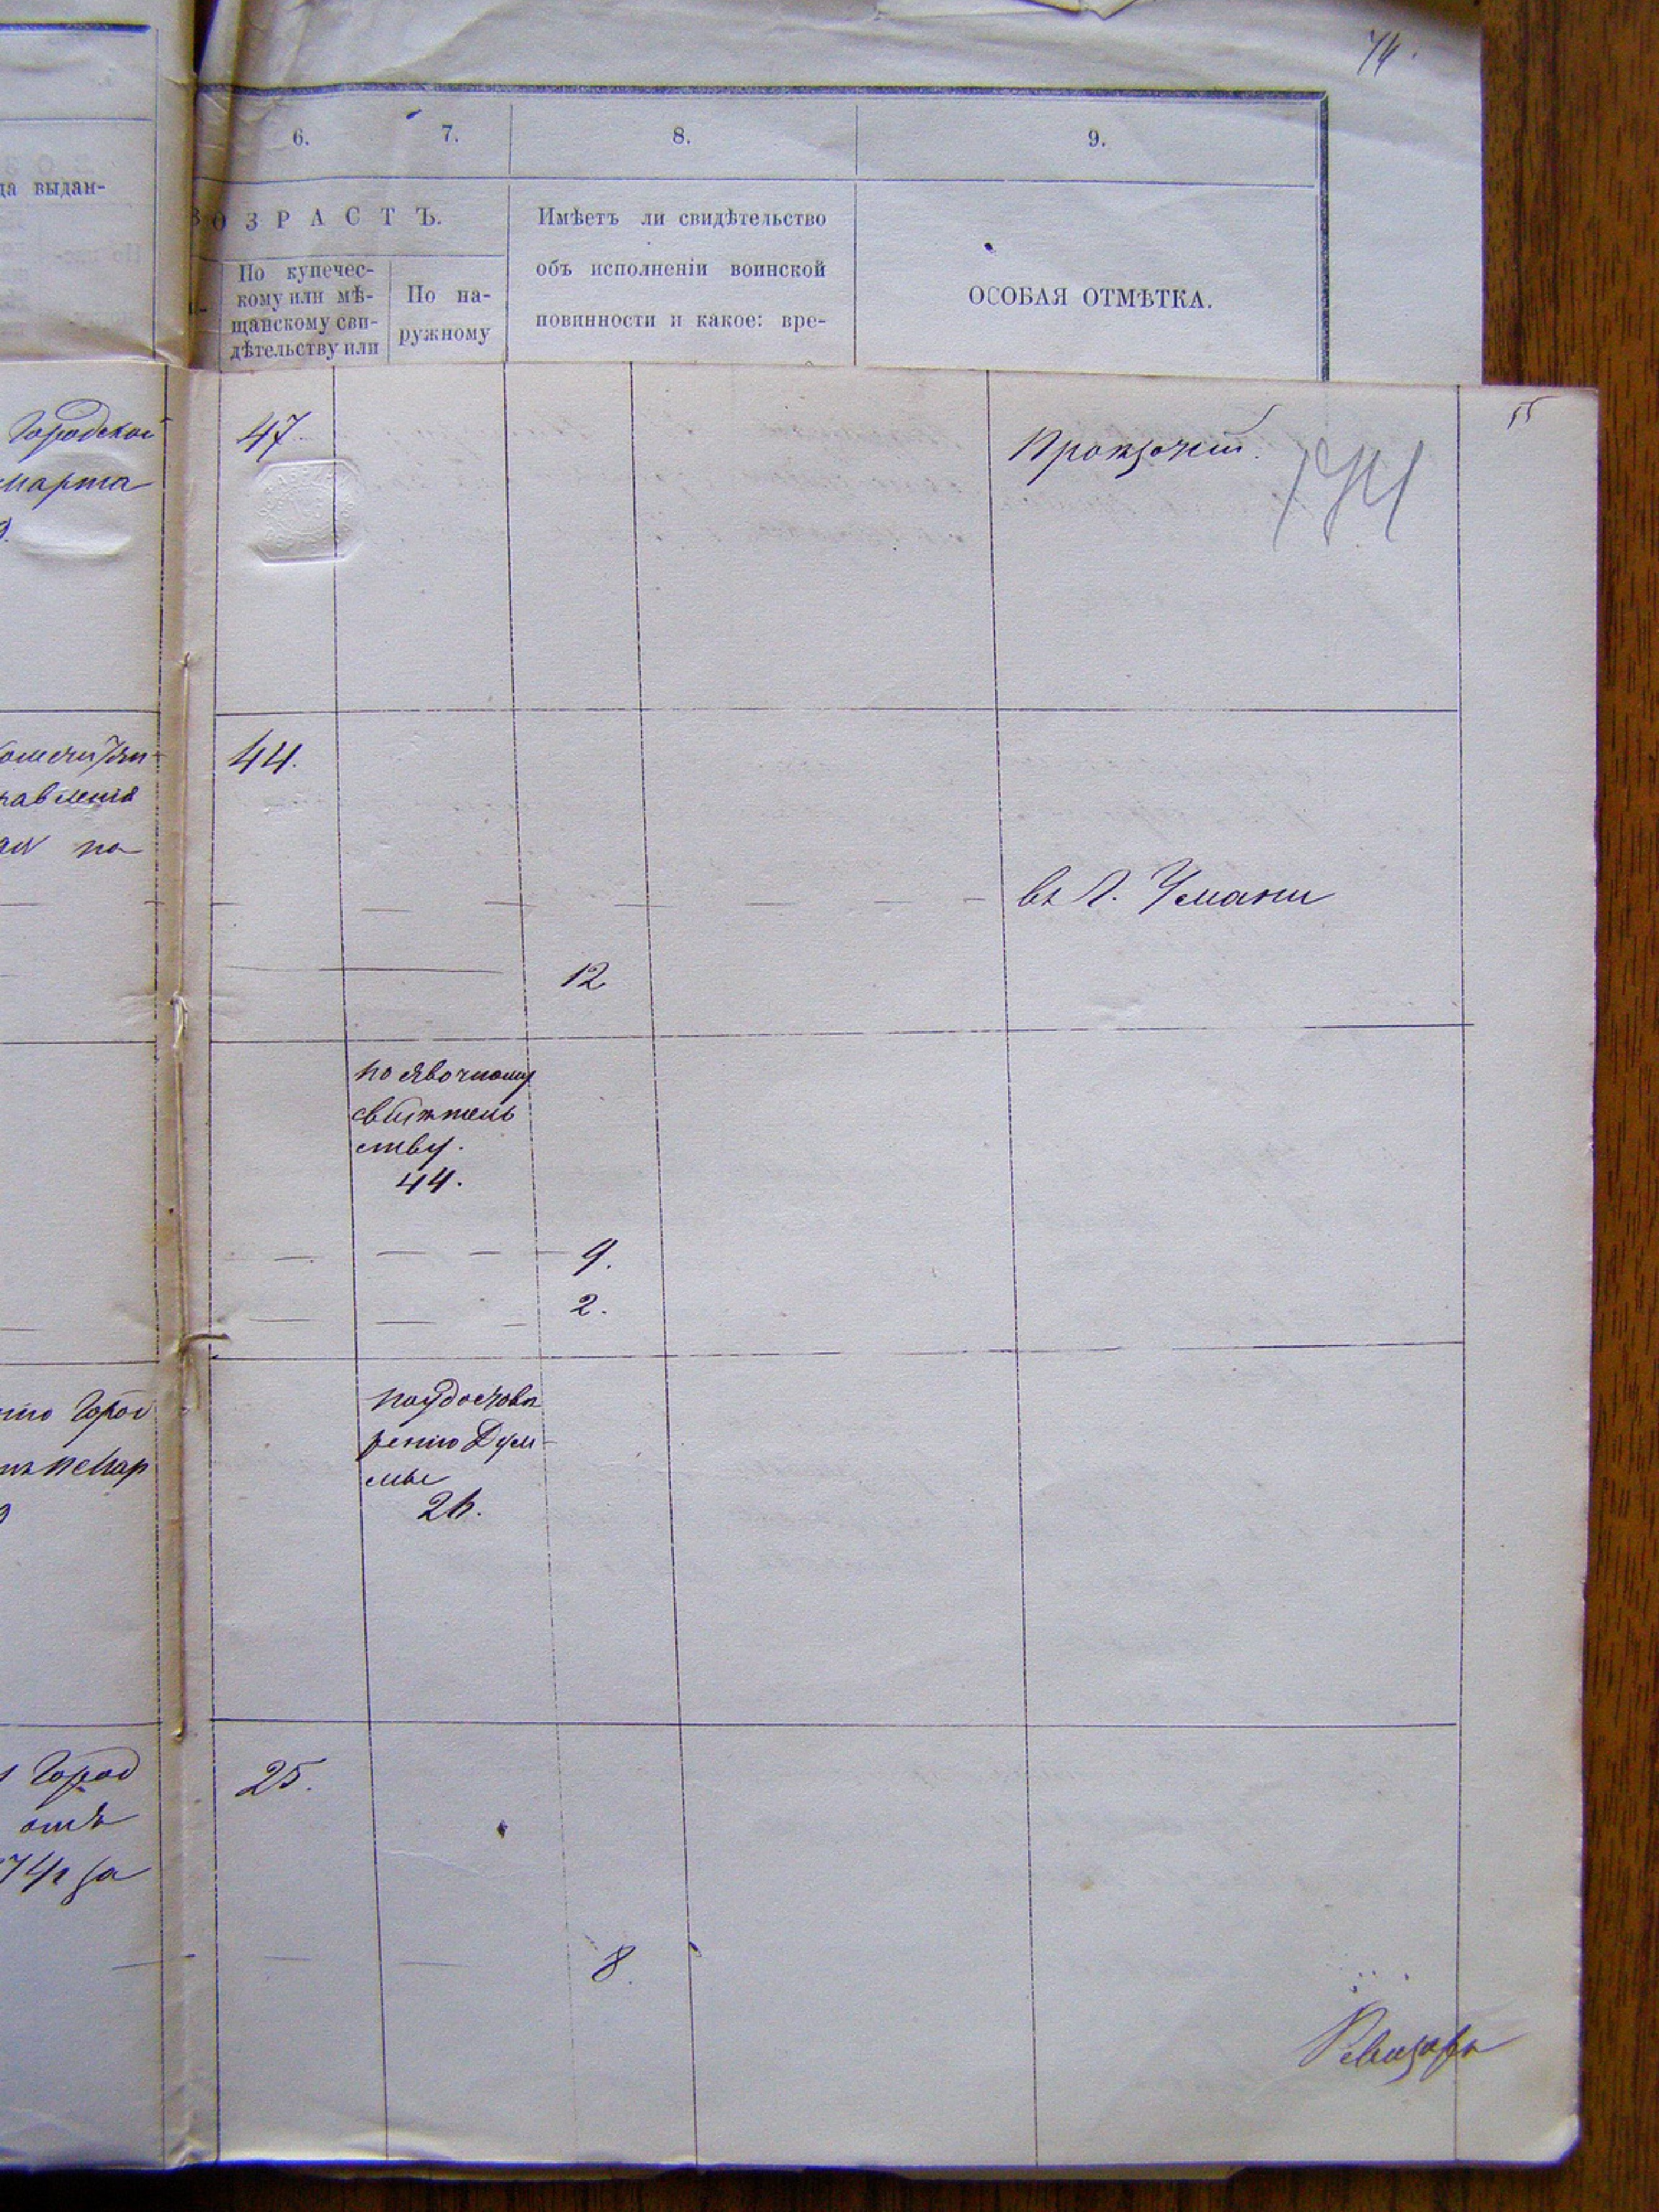 74.
6. 7. 8. 9.
да выдан-
ВОЗРАСТЪ.
Имѣетъ ли свидѣтельство
объ исполненіи воинской
повинности и какое: вре-
ОСОБАЯ ОТМѢТКА.
По купечес-
кому или мѣ-
щанскому сви-
дѣтельству или
По на-
ружному
55
Городской
марта
47.
44.
по
въ Г. Умани
12
по явочному
свидѣтель
ству.
44.
9.
2.
по удостовѣ
ренію Дум-
мы
26.
Город
25.
отъ
74 г за
8.
Ревизоръ